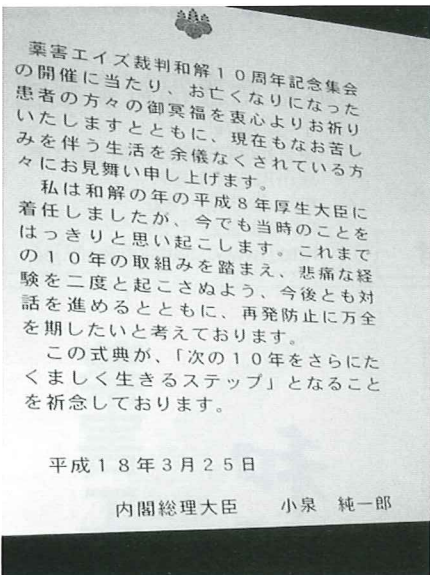 薬害エイズ裁判和解10周年記念集会
の開催に当たり、お亡くなりになった
患者の方々の御冥福を衷心よりお祈り
いたしますとともに、現在もなお苦し
みを伴う生活を余儀なくされている方
々にお見舞い申し上げます。
私は和解の年の平成8年厚生大臣に
着任しましたが、今でも当時のことを
はっきりと思い起こします。これまで
の10年の取組みを踏まえ、悲痛な経
験を二度と起こさぬよう、今後とも対
話を進めるとともに、再発防止に万全
を期したいと考えております。
この式典が、「次の10年をさらにた
くましく生きるステップ」となること
を祈念しております。
平成18年3月25日
内閣総理大臣　小泉　純一郎